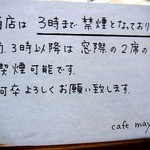 当店は 3時まで禁煙となっており
3時以降は 窓際の2席の
喫煙可能です。
何卒よろしくお願い致します。
cafe may